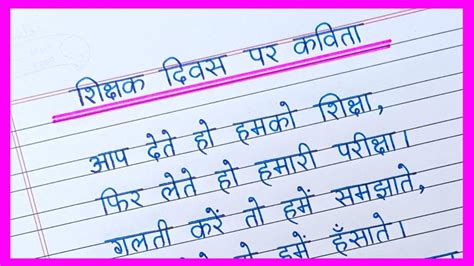 शिक्षक दिवस पर कविता
आप देते हो हमको शिक्षा,
फिर लेते हो हमारी परीक्षा।
गलती करें तो हमें समझाते,
हमें हँसाते।